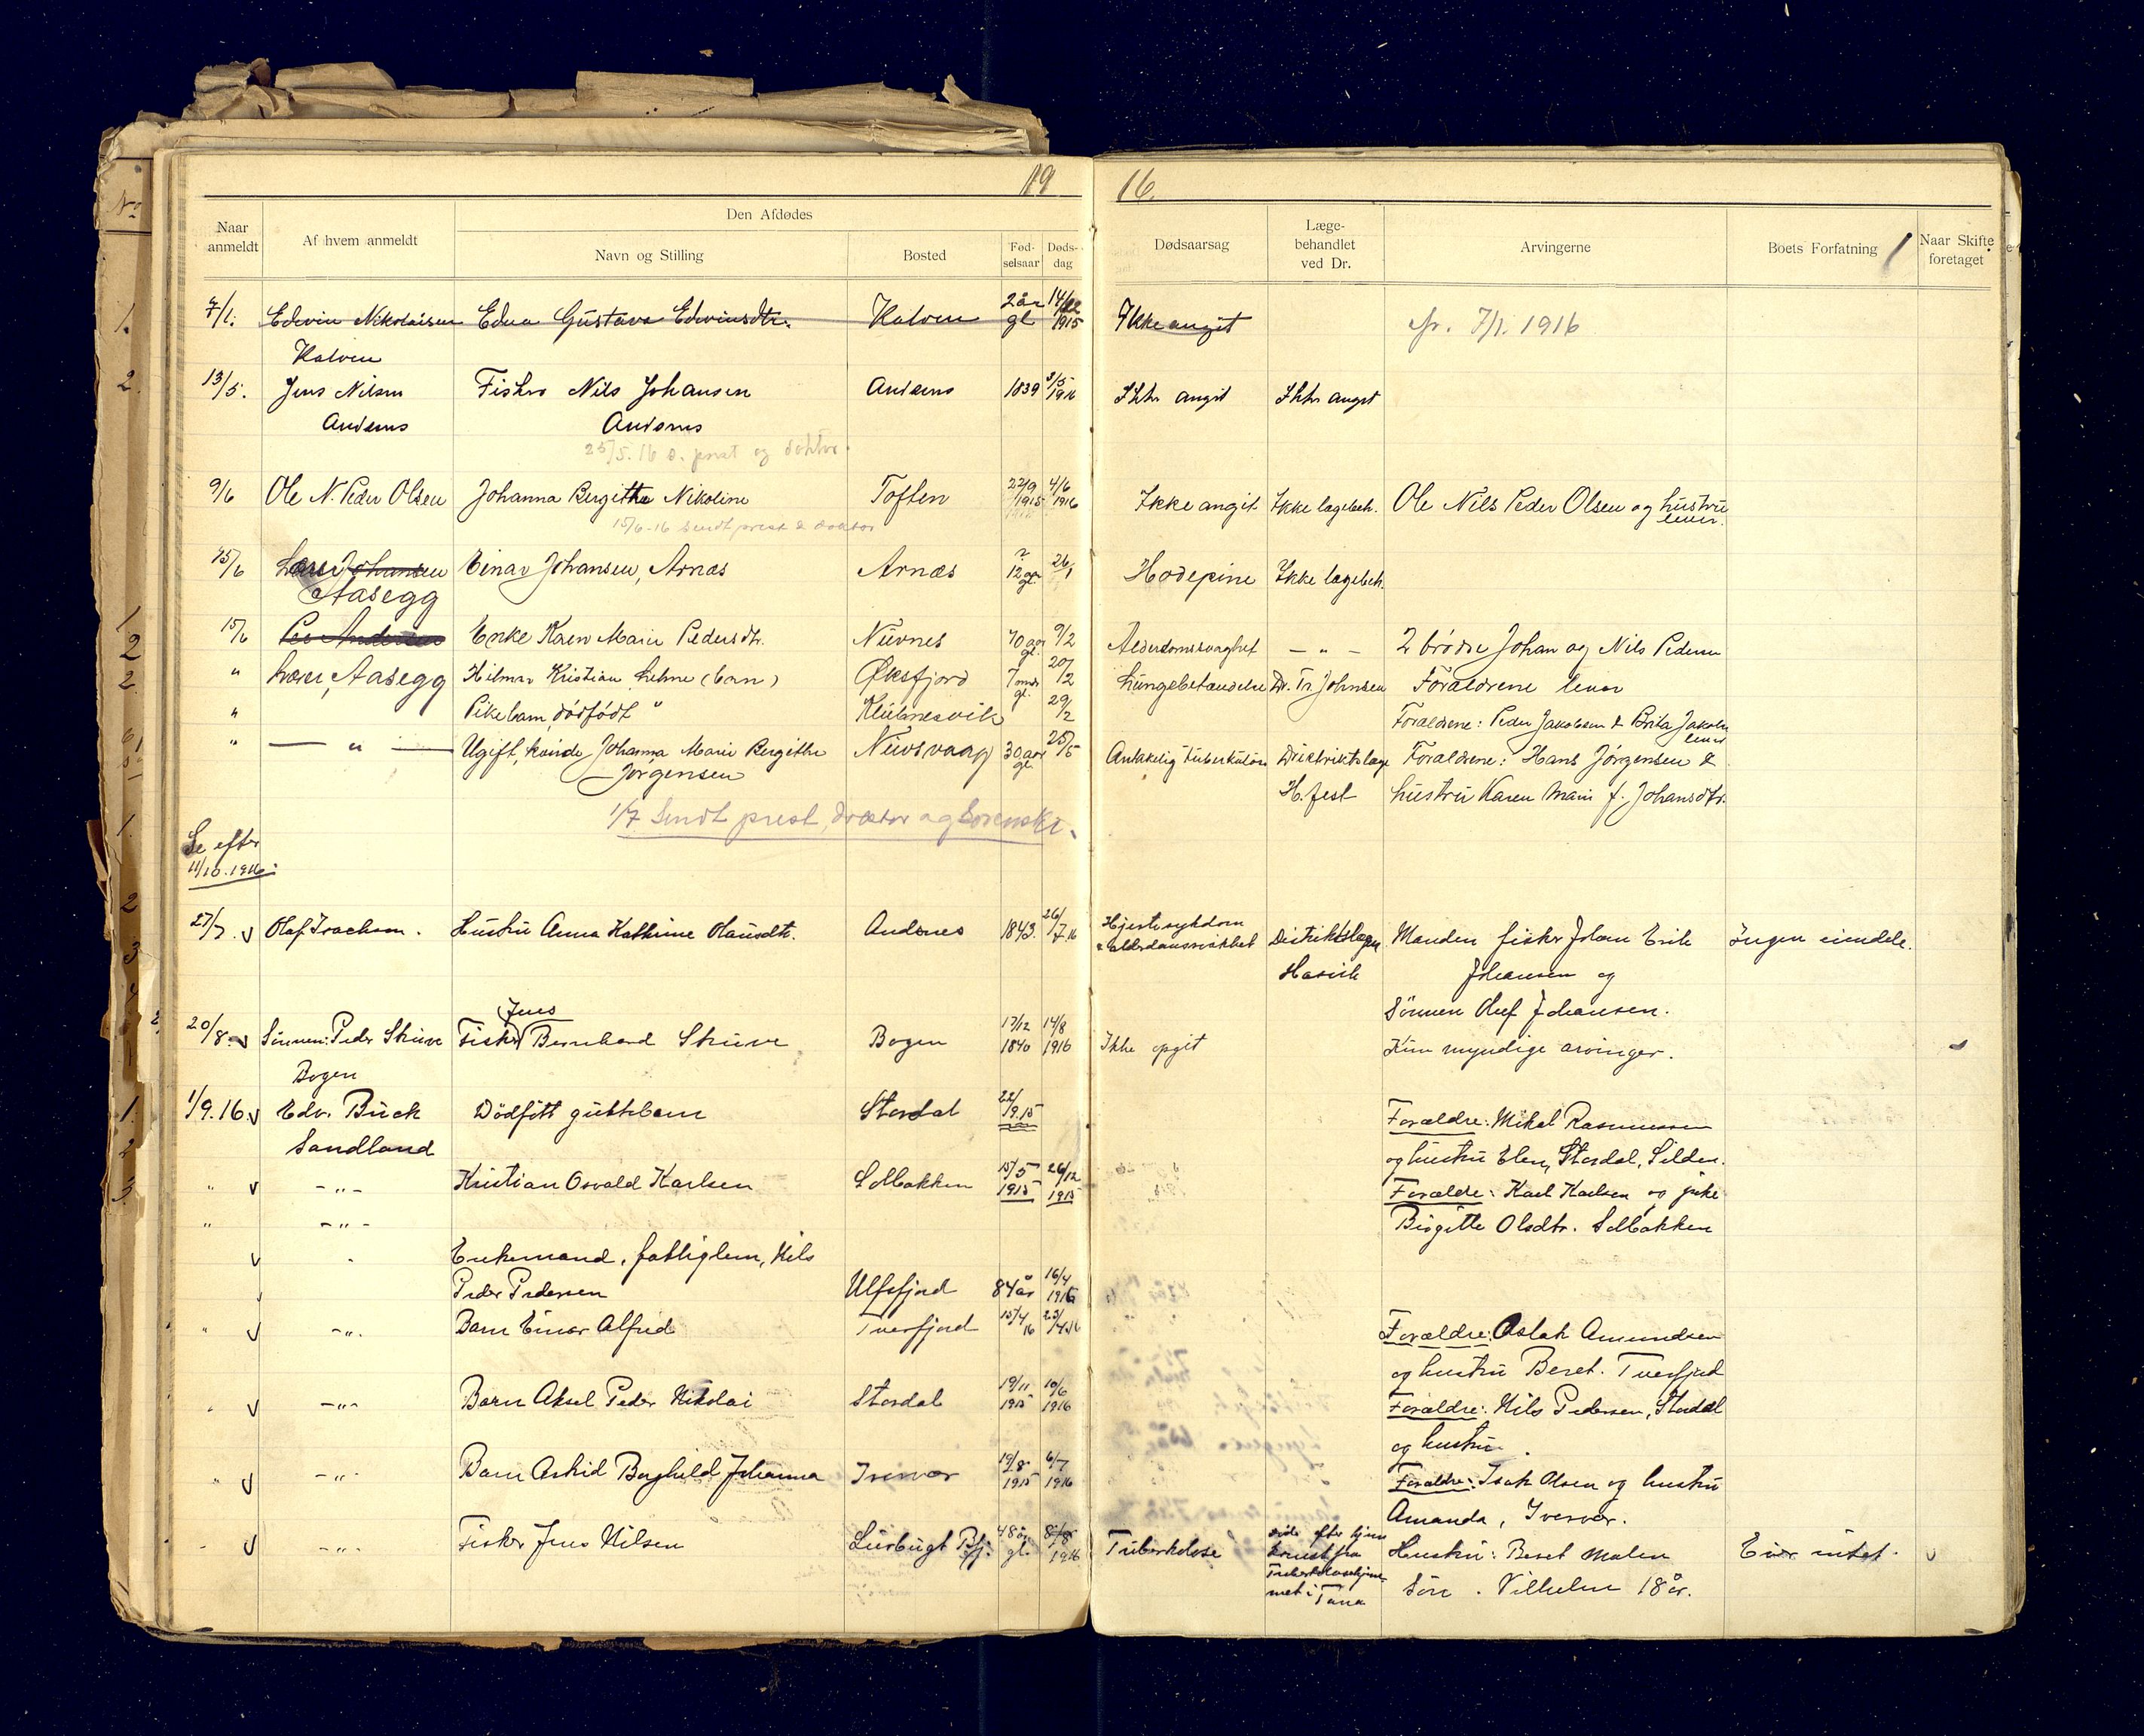 19 16.
Naar anmeldt
Af hvem anmeldt
Den Afdødes
Navn og Stilling
Bosted
Fød- selsaar
Døds- dag
Dødsaarsag
Læge- behandlet ved Dr.
Arvingerne
Boets Forfatning
Naar Skifte foretaget
7/1. Edvin Nikolaisen Edna Gustava Edvinsdtr. Kalven 2 år gl 14/12 1915 Ikke angit 7/1. 1916
Kalven
13/5. Jens Nilsen Fisker Nils Johansen Andsnes 1839 3/5 1916 Ikke angit Ikke angit
Andsnes Andsnes
25/5. 16 s. prest og doktor.
9/6 Ole N. Peder Olsen Johanna Bergitha Nikoline Toften 22/9 1915 4/6 1916 Ikke angit Ikke lægebeh. Ole Nils Peder Olsen og hustru
lever.
15/6-16 Sendt prest & doktor
15/6 Lærer Johansen Einar Johansen, Arnæs Arnæs 12 gl. 26/1 Hodepine Ikke lægebeh.
Aasegg
15/6 Per Andersen Enke Karen Marie Pedersdtr. Nuvnes 70 aar gl. 9/2 Alderdomssvaghet — " — 2 brødre Johan og Nils Pedersen
" Lærer, Aasegg Hilmar Kristian Lehne (barn) Øksfjord 7 mdr gl. 20/2 Lungebetændelse Dr. Tr. Johnsen Forældrene lever
" Pikebarn, dödfödt " Klubnesvik 29/2 Forældrene: Peder Jakobsen & Brita Jakobs
lever
" — " — Ugift, kvinde Johanna Marie Bergithe Nuvsvaag 30 aar gl. 25/5 Antakelig Tuberkulose Distriktslæge Forældrene: Hans Jörgensen &
Jørgensen H. Jest hustru Karen Marie f. Johansdtr.
1/7 Sendt prest, doktor og Sorenskr.
Se efter
11/10. 1916.
27/7. v Olaf Hustru Anna Kathrine Hansdtr. Andsnes 1843. 26/7 16 Hjertesykdom Distriktslægen Manden fisker Johan Erik Ingen eiendele.
Hasvik Johansen og
Sönnen Oluf Johansen.
20/8. v Sönnen: Peder Struve Fisker Jens Bernhard Struve Bogen 17/12 1840 14/8 1916 Ikke opgit Kun myndige arvinger.
Bogen
1/9.16. v Edv. Buck Dödfött guttebarn Stordal 22/9.15 Forældre: Mikal Rasmussen
Sandland og hustru Elen, Stordal, Silden.
" v - " - Kristian Osvald Karlsen Solbakken 15/5 1915 26/12 1915 Forældre: Karl Karlsen og pike
" - " - Birgitte Olsdtr. Solbakken
v Enkemand, fattiglem, Nils
Peder Pedersen Ulfsfjord 84 år 16/4 1916
" v - " - Barn Einar Alfred Tverfjord 15/4 16 23/4 16 Forældre: Aslak Amundsen
og hustru Beret. Tverfjord
" v - " - Barn Aksel Peder Nikolai Stordal 19/11 1915 10/6 1916 Forældre: Nils Pedersen, Stordal
og hustru.
" v - " - Barn Astrid Borghild Johanna Iversvær 19/8 1915 6/7 1916 Forældre: Isak Olsen og hustru
Amanda, Iversvær.
" v - " - Fisker Jens Nilsen Lusbugt Bfj. 48 år gl. 8/8 1916 Tuberkulose efter hjemkomst fra Tuberkulosehjemmet i Tana Hustru: Beret Malen Eier intet.
Sön. Vilhelm 18 år.